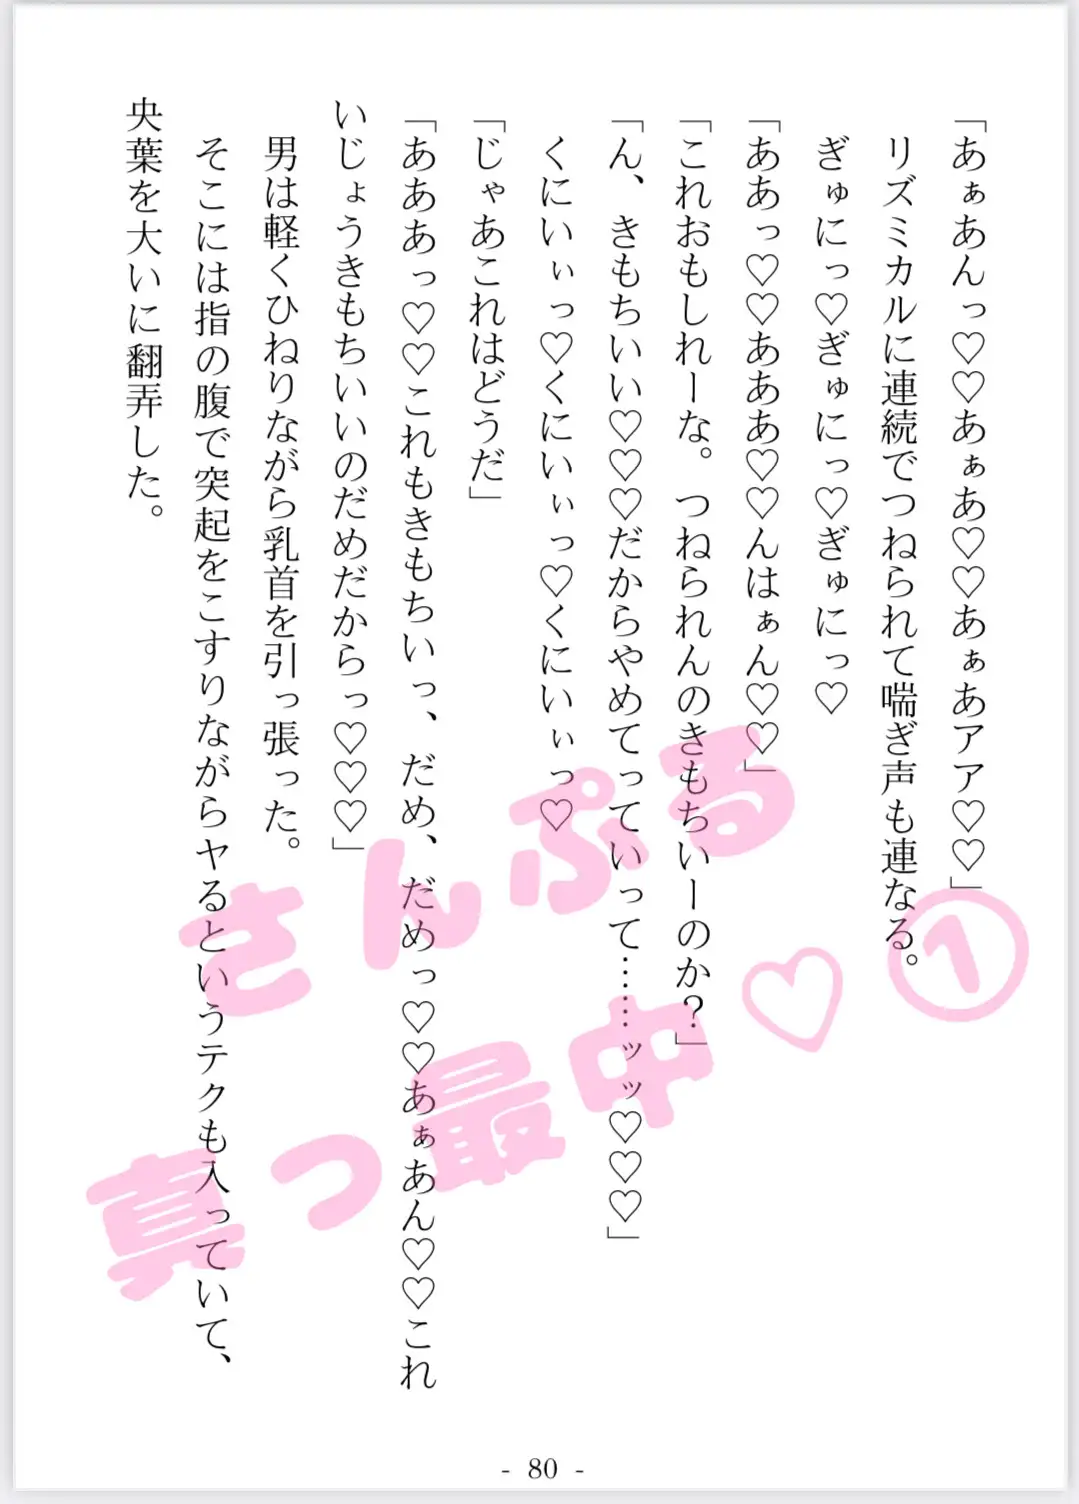 「あぁあんっ♡♡あぁあ♡♡あぁあアア♡♡」
リズミカルに連続でつねられて喘ぎ声も連なる。
ぎゅにっ♡ぎゅにっ♡ぎゅにっ♡
「ああっ♡♡あああ♡♡んはぁん♡♡」
「これおもしれーな。つねられんのきもちいーのか？」
「ん、きもちいい♡♡♡だからやめてっていって……ッッ♡♡♡」
くにいぃっ♡くにいぃっ♡くにいぃっ♡
「じゃあこれはどうだ」
「あああっ♡♡これもきもちいっ、だめ、だめっ♡♡あぁあん♡♡これ
いじょうきもちいいのだめだからっ♡♡♡」
男は軽くひねりながら乳首を引っ張った。
そこには指の腹で突起をこすりながらヤるというテクも入っていて、
央葉を大いに翻弄した。
さんぷる①
真っ最中♡
- 80 -